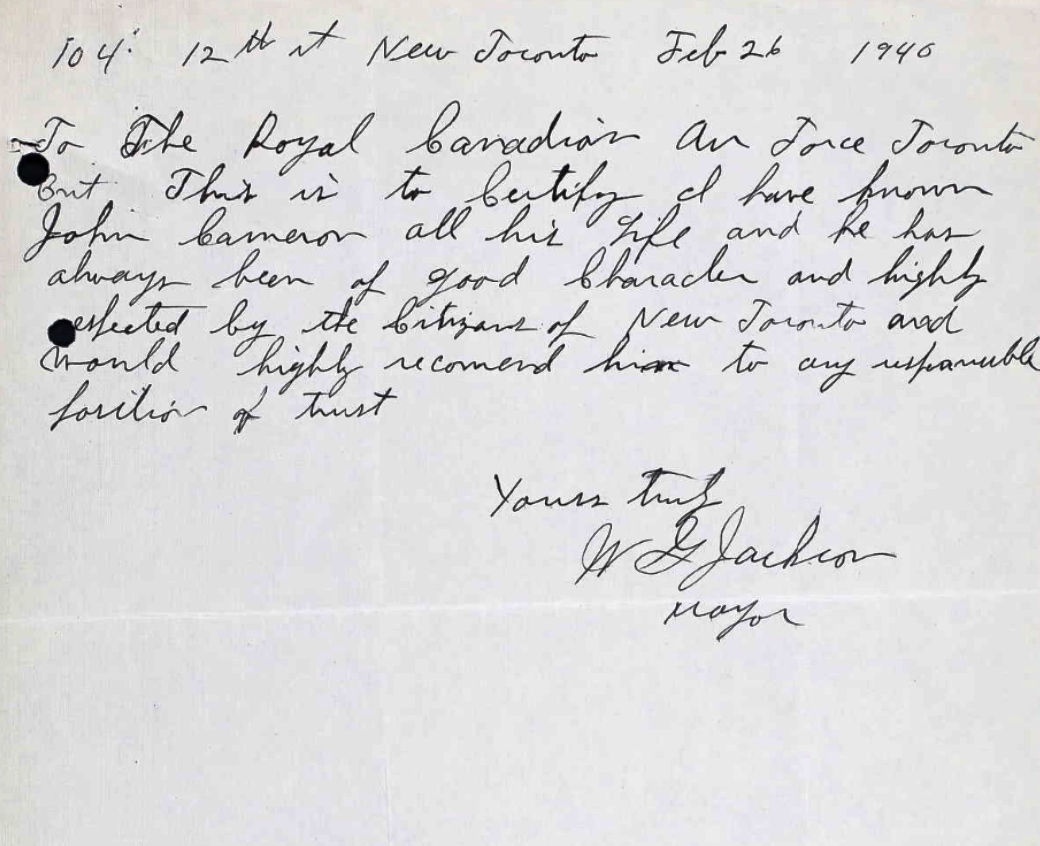 104 12th st New Toronto Feb 26 1940
To The Royal Canadian Air Force Toronto
Ont This is to Certify I have known
John Cameron all his Life and he has
always been of good Character and highly
respected by the Citizans of New Toronto and
would highly recomend him to any responsible
position of trust
Yours truly
W G Jackson
Mayor